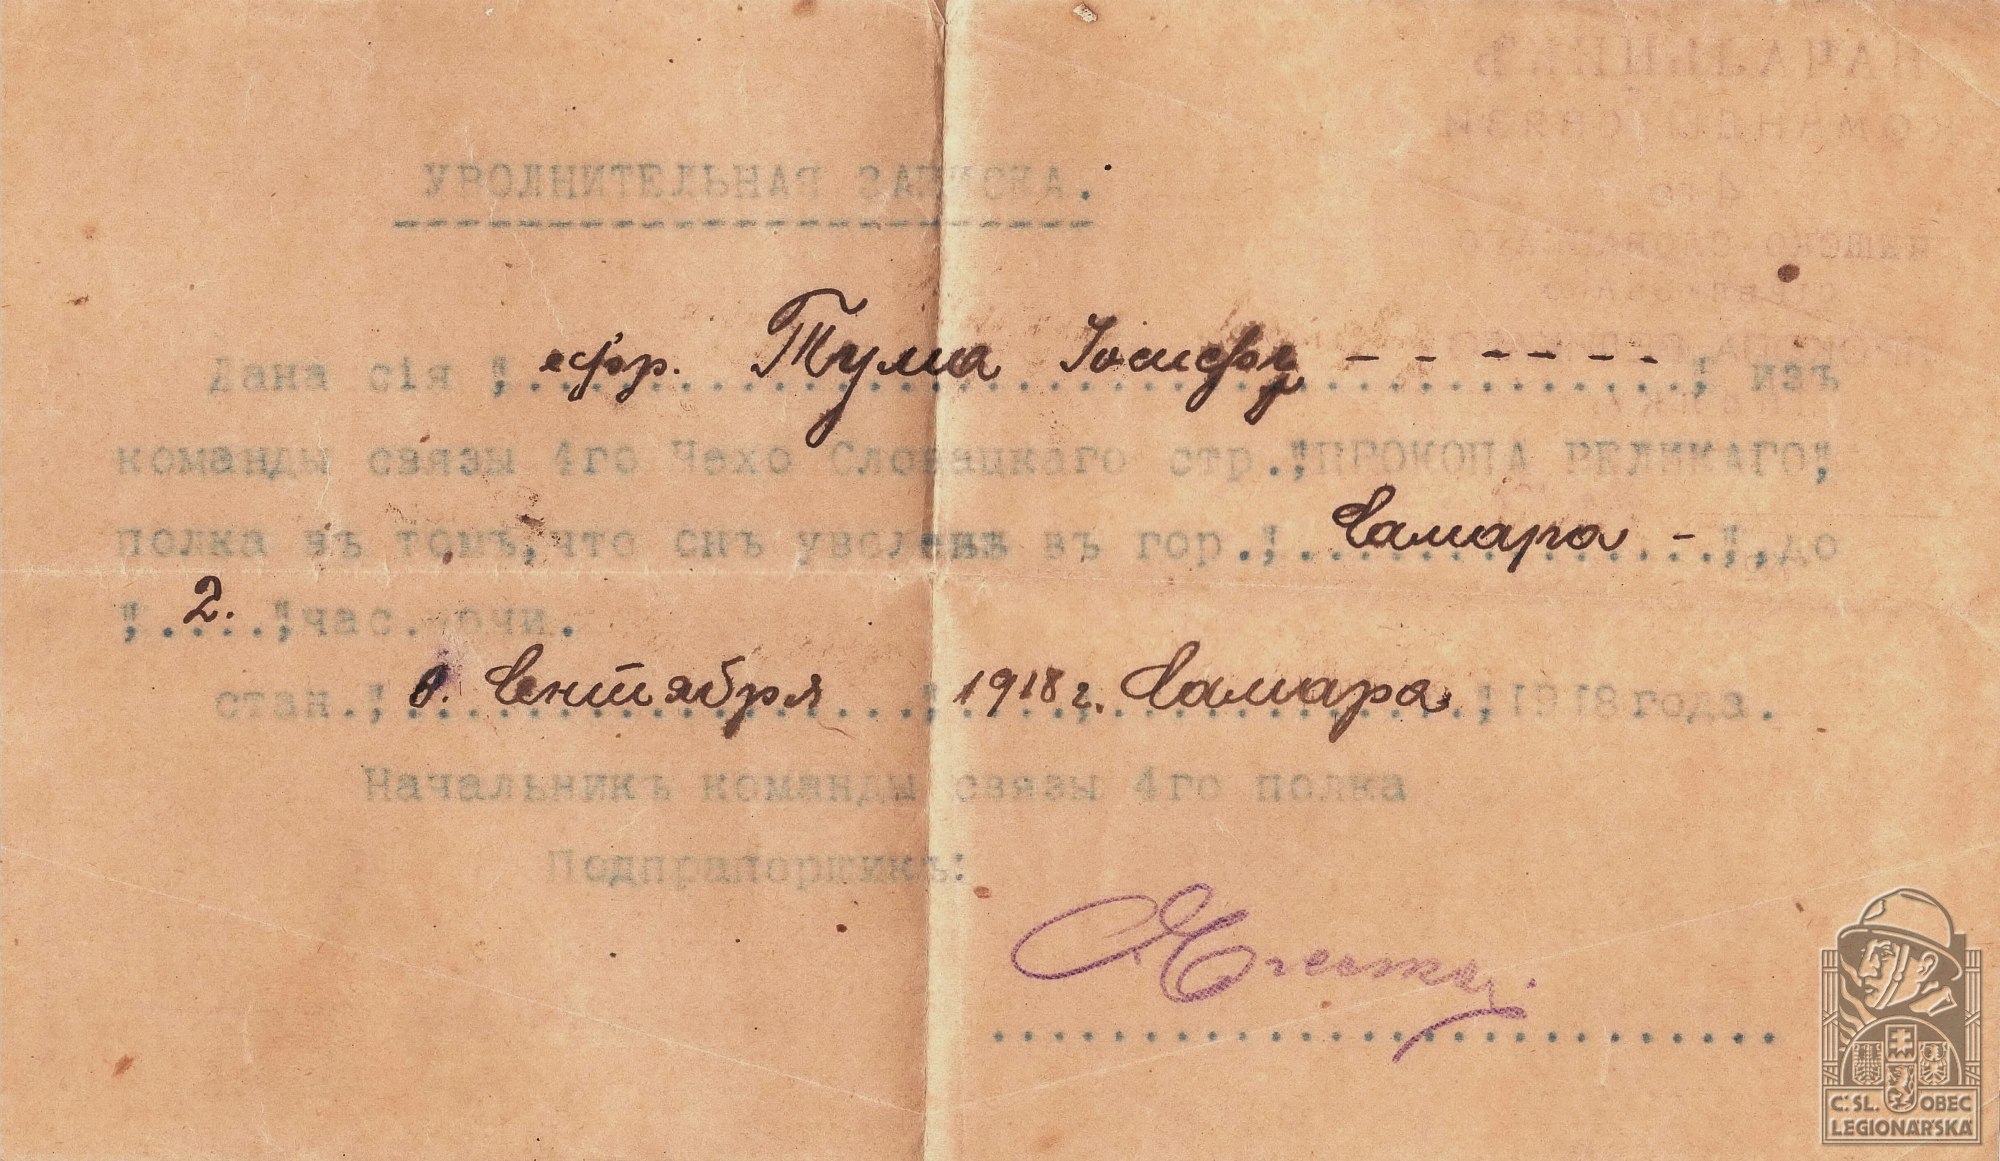 УВОЛНИТЕЛЬНАЯ ЗАПИСКА.
Дана сія „ ефр. Тума Іосифу - - - - - - " изъ
команды связы 4го Чехо Словацкаго стр. „ПРОКОПА ВЕЛИКАГО"
полка въ томъ, что онъ уволенъ въ гор. „ Самара - ", до
„ 2. " час. ночи.
стан. „ Сентября 1918 г. Самара " 1918 года.
Начальникъ команды связы 4го полка
Подпрапорщикъ:
Č. SL. OBEC
LEGIONÁŘSKÁ